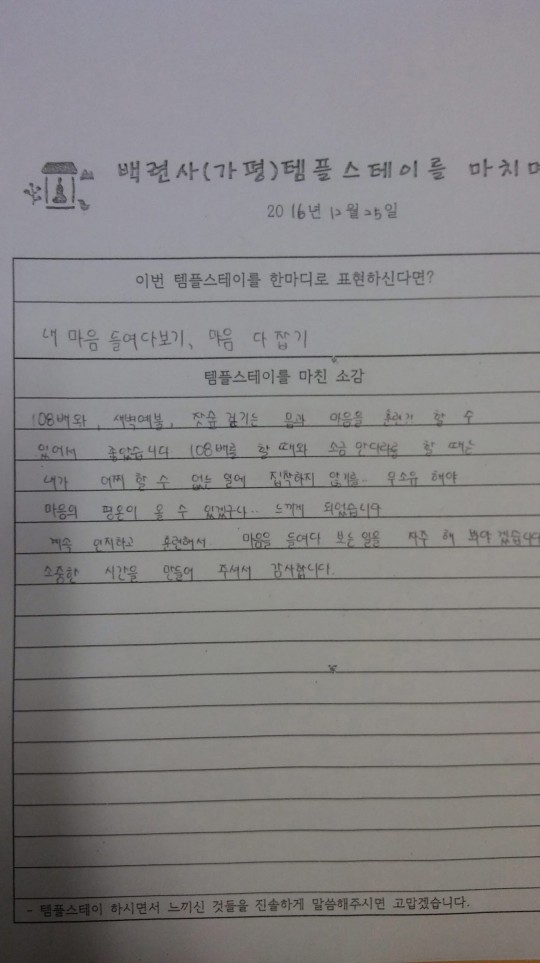 백련사(가평)템플스테이를 마치며
2016년 12월 25일
이번 템플스테이를 한마디로 표현하신다면?
내 마음 들여다보기, 마음 다잡기
템플스테이를 마친 소감
108배와, 새벽예불, 잣숲 걷기는 몸과 마음을 훈련기 할 수
있어서 좋았습니다 108배를 할 때와 소금 만다라를 할 때는
내가 어찌 할 수 없는 일에 집착하지 않기를.. 무소유 해야
마음의 평온이 올 수 있겠구나.. 느끼게 되었습니다
계속 인지하고 훈련해서 마음을 들여다 보는 일을 자주 해 봐야 겠습니다
소중한 시간을 만들어 주셔서 감사합니다.
- 템플스테이 하시면서 느끼신 것들을 진솔하게 말씀해주시면 고맙겠습니다.